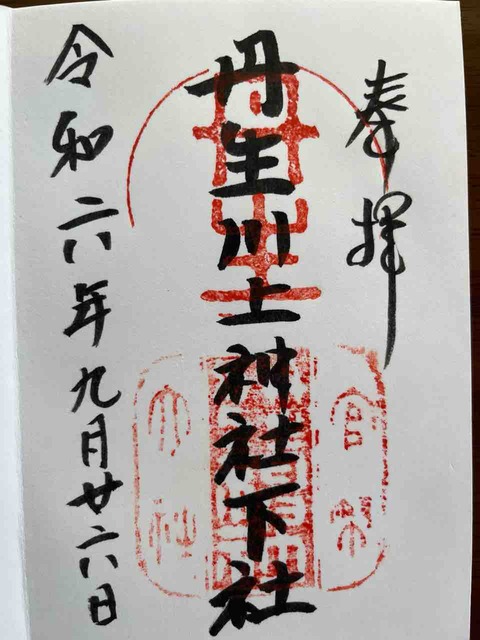 奉拝
丹生川上神社下社
令和六年九月廿六日
官幣
大社